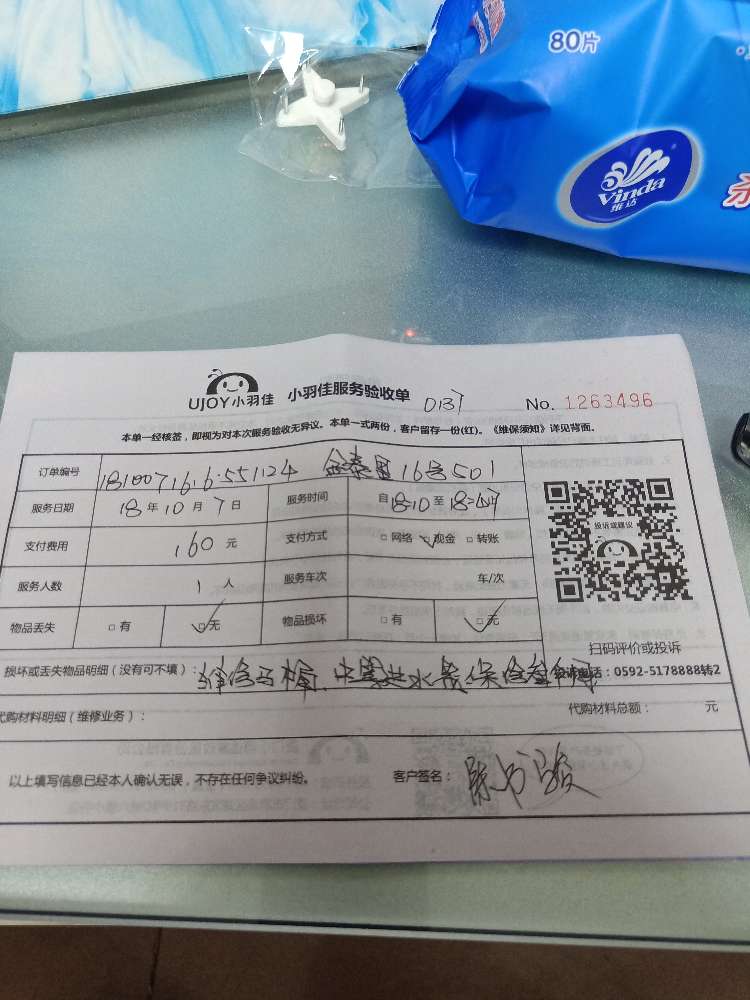 80片
Vinda
维达
UJOY小羽佳 小羽佳服务验收单 0137 No. 1263496
本单一经核签，即视为对本次服务验收无异议。本单一式两份，客户留存一份(红)。《维保须知》详见背面。
订单编号 18100716.6.551124 金泰里16号501
服务日期 18年10月7日 服务时间 自18:10至18:47
支付费用 160元 支付方式 □网络 □现金 □转账
服务人数 1人 服务车次 车/次
物品丢失 □有 □无 物品损坏 □有 □无
投诉或建议
扫码评价或投诉
损坏或丢失物品明细（没有可不填）：维修马桶 投诉电话：0592-5178888转2
代购材料明细（维修业务）： 代购材料总额： 元
以上填写信息已经本人确认无误，不存在任何争议纠纷。 客户签名：